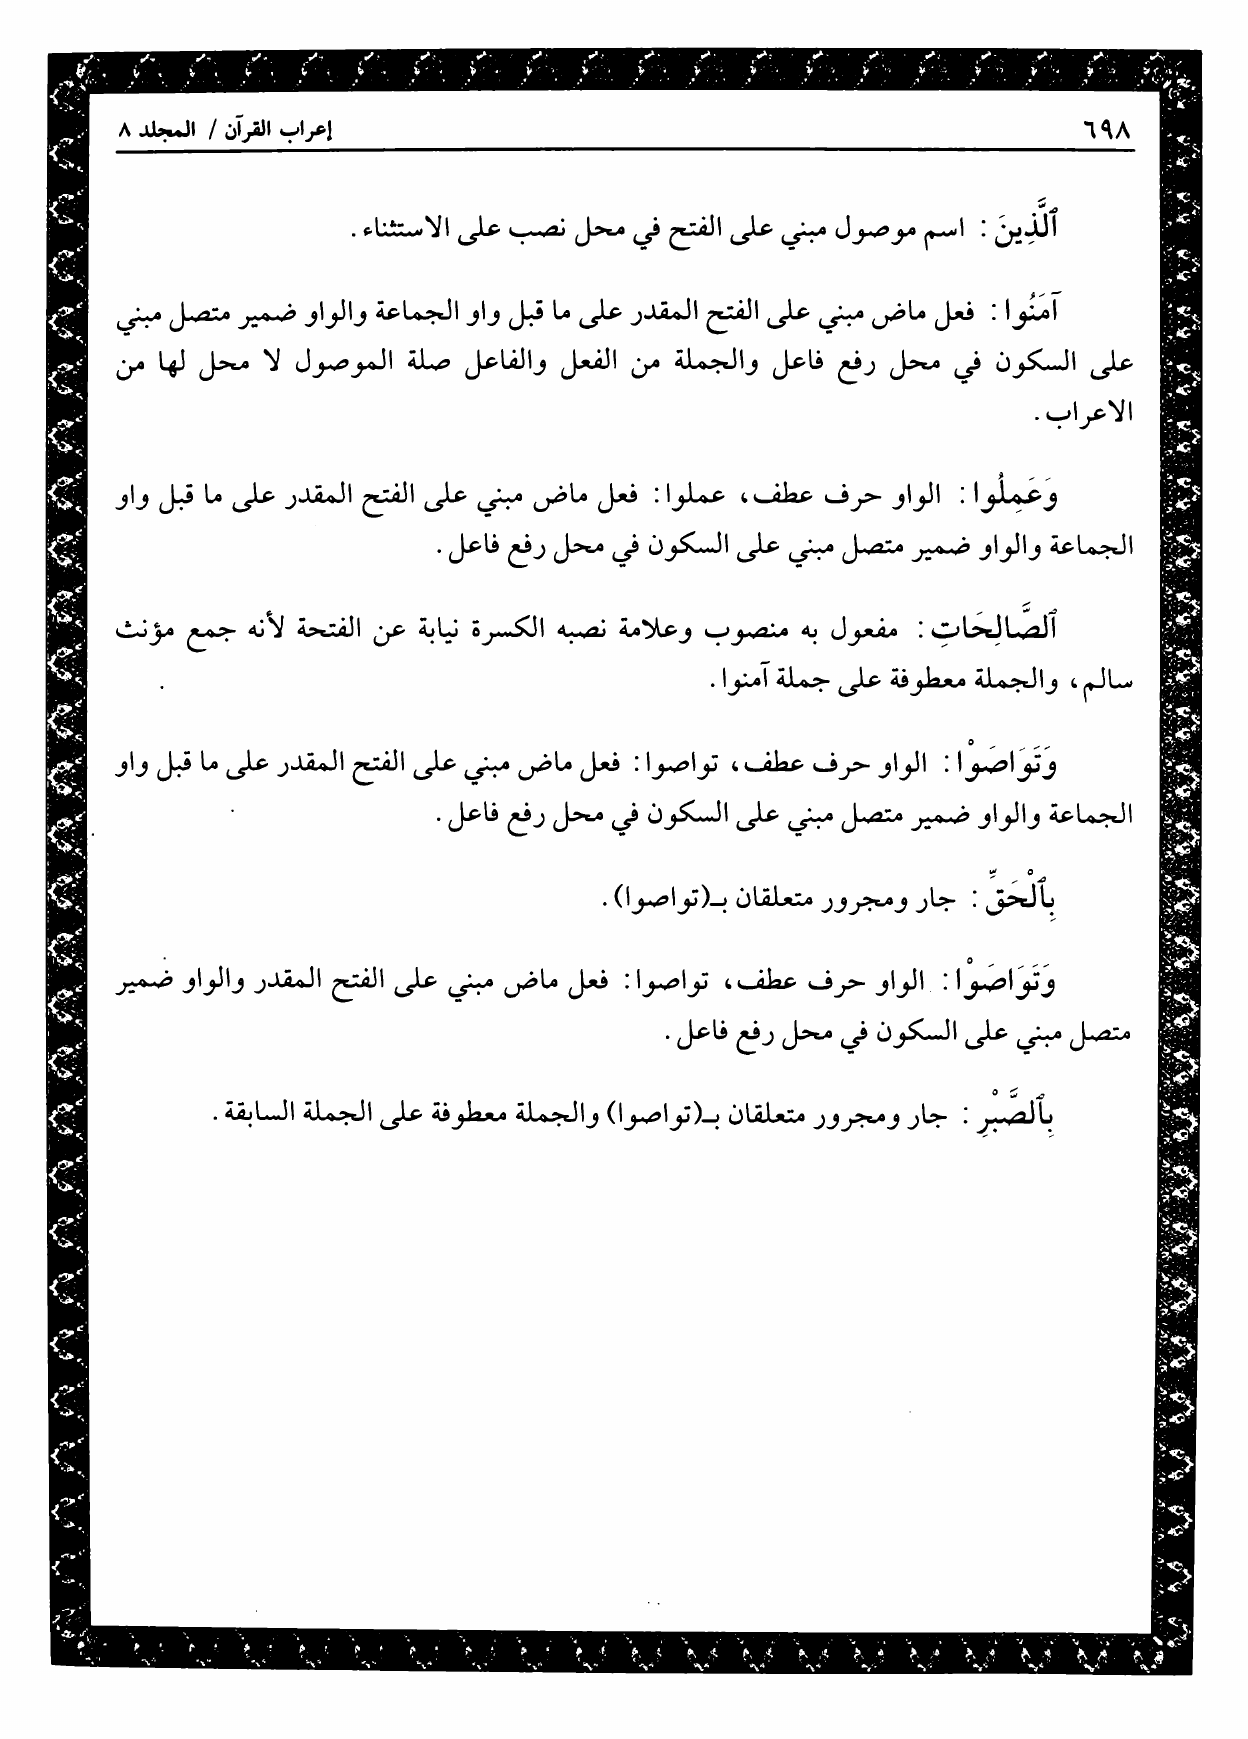 ٦٩٨ إعراب القرآن / المجلد ٨
ٱلَّذِينَ : اسم موصول مبني على الفتح في محل نصب على الاستثناء.
آمَنُوا : فعل ماض مبني على الفتح المقدر على ما قبل واو الجماعة والواو ضمير متصل مبني
على السكون في محل رفع فاعل والجملة من الفعل والفاعل صلة الموصول لا محل لها من
الاعراب.
وَعَمِلُوا : الواو حرف عطف، عملوا: فعل ماض مبني على الفتح المقدر على ما قبل واو
الجماعة والواو ضمير متصل مبني على السكون في محل رفع فاعل.
ٱلصَّالِحَاتِ : مفعول به منصوب وعلامة نصبه الكسرة نيابة عن الفتحة لأنه جمع مؤنث
سالم، والجملة معطوفة على جملة آمنوا.
وَتَوَاصَوْا : الواو حرف عطف، تواصوا: فعل ماض مبني على الفتح المقدر على ما قبل واو
الجماعة والواو ضمير متصل مبني على السكون في محل رفع فاعل.
بِٱلْحَقِّ : جار ومجرور متعلقان بـ(تواصوا).
وَتَوَاصَوْا : الواو حرف عطف، تواصوا: فعل ماض مبني على الفتح المقدر والواو ضمير
متصل مبني على السكون في محل رفع فاعل.
بِٱلصَّبْرِ : جار ومجرور متعلقان بـ(تواصوا) والجملة معطوفة على الجملة السابقة.